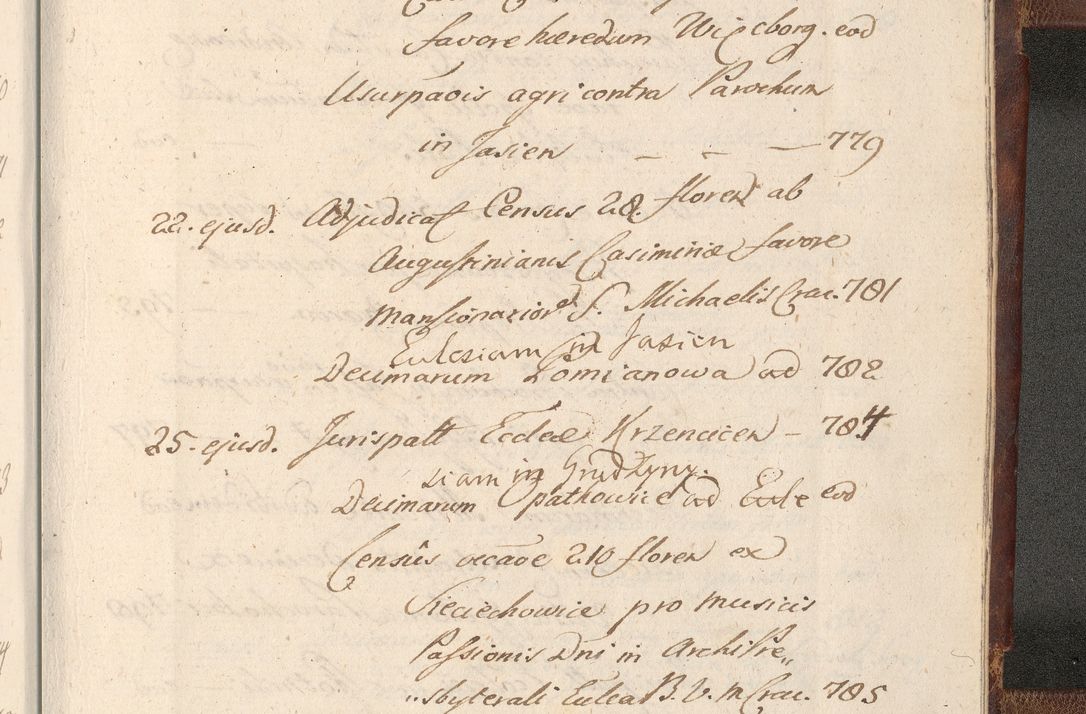 favore hæredum Wixcborg. eod
Usurpaõis agri contra Parochum
in Jasien — — — 779
22. ejusd. Adjudicat Census 28. floren ab
Augustinianis Casimiriæ favore
Mansionarior S. Michaelis Crac. 781
Ecclesiam in Jasien
Decimarum Łomianowa ad 782
25. ejusd. Jurispatt Ecclæ Krzencicen – 784
siam in Grudzyny.
Decimarum Opatkowice ad Eccle eod
Census vecãõe 210 floren ex
Sieciechowice pro Musicis
Passionis Dni in Archipre„
„sbyterali Ecclea B. V. M Crac. 785